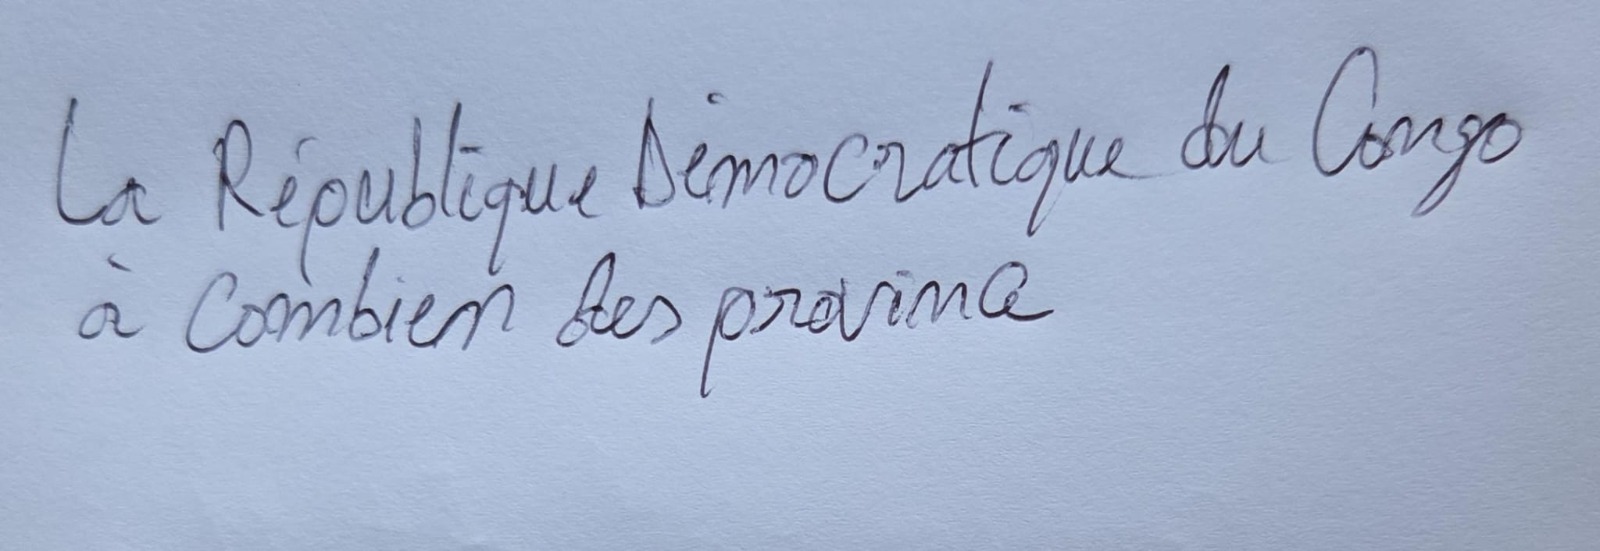 La République Démocratique du Congo
à Combien des province